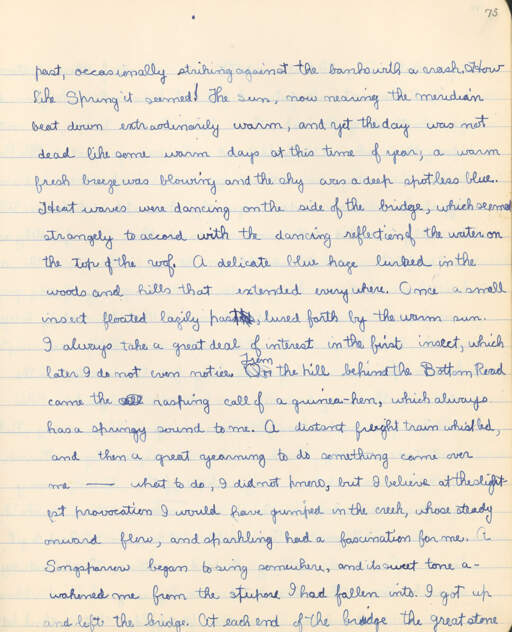 75
past, occasionally striking against the banks with a crash. How
like Spring it seemed! The sun, now nearing the meridian
beat down extraordinarily warm, and yet the day was not
dead like some warm days at this time of year; a warm
fresh breeze was blowing and the sky was a deep spotless blue.
Heat waves were dancing on the side of the bridge, which seemed
strangely to accord with the dancing reflection of the water on
the top of the roof. A delicate blue haze lurked in the
woods and hills that extended everywhere. Once a small
insect floated lazily past, lured forth by the warm sun.
I always take a great deal of interest in the first insect, which
later I do not even notice. From the hill behind the Bottom Road
came the rasping call of a guinea-hen, which always
has a springy sound to me. A distant freight train whistled,
and then a great yearning to do something came over
me — what to do, I did not know, but I believe at the slight-
est provocation I would have jumped in the creek, whose steady
onward flow, and sparkling had a fascination for me. A
Songsparrow began to sing somewhere, and its sweet tone a-
wakened me from the stupore I had fallen into. I got up
and left the bridge. At each end of the bridge the great stone